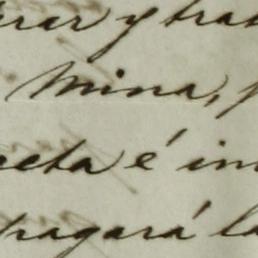 rar y tra
Mina,
recta é in
pagará la